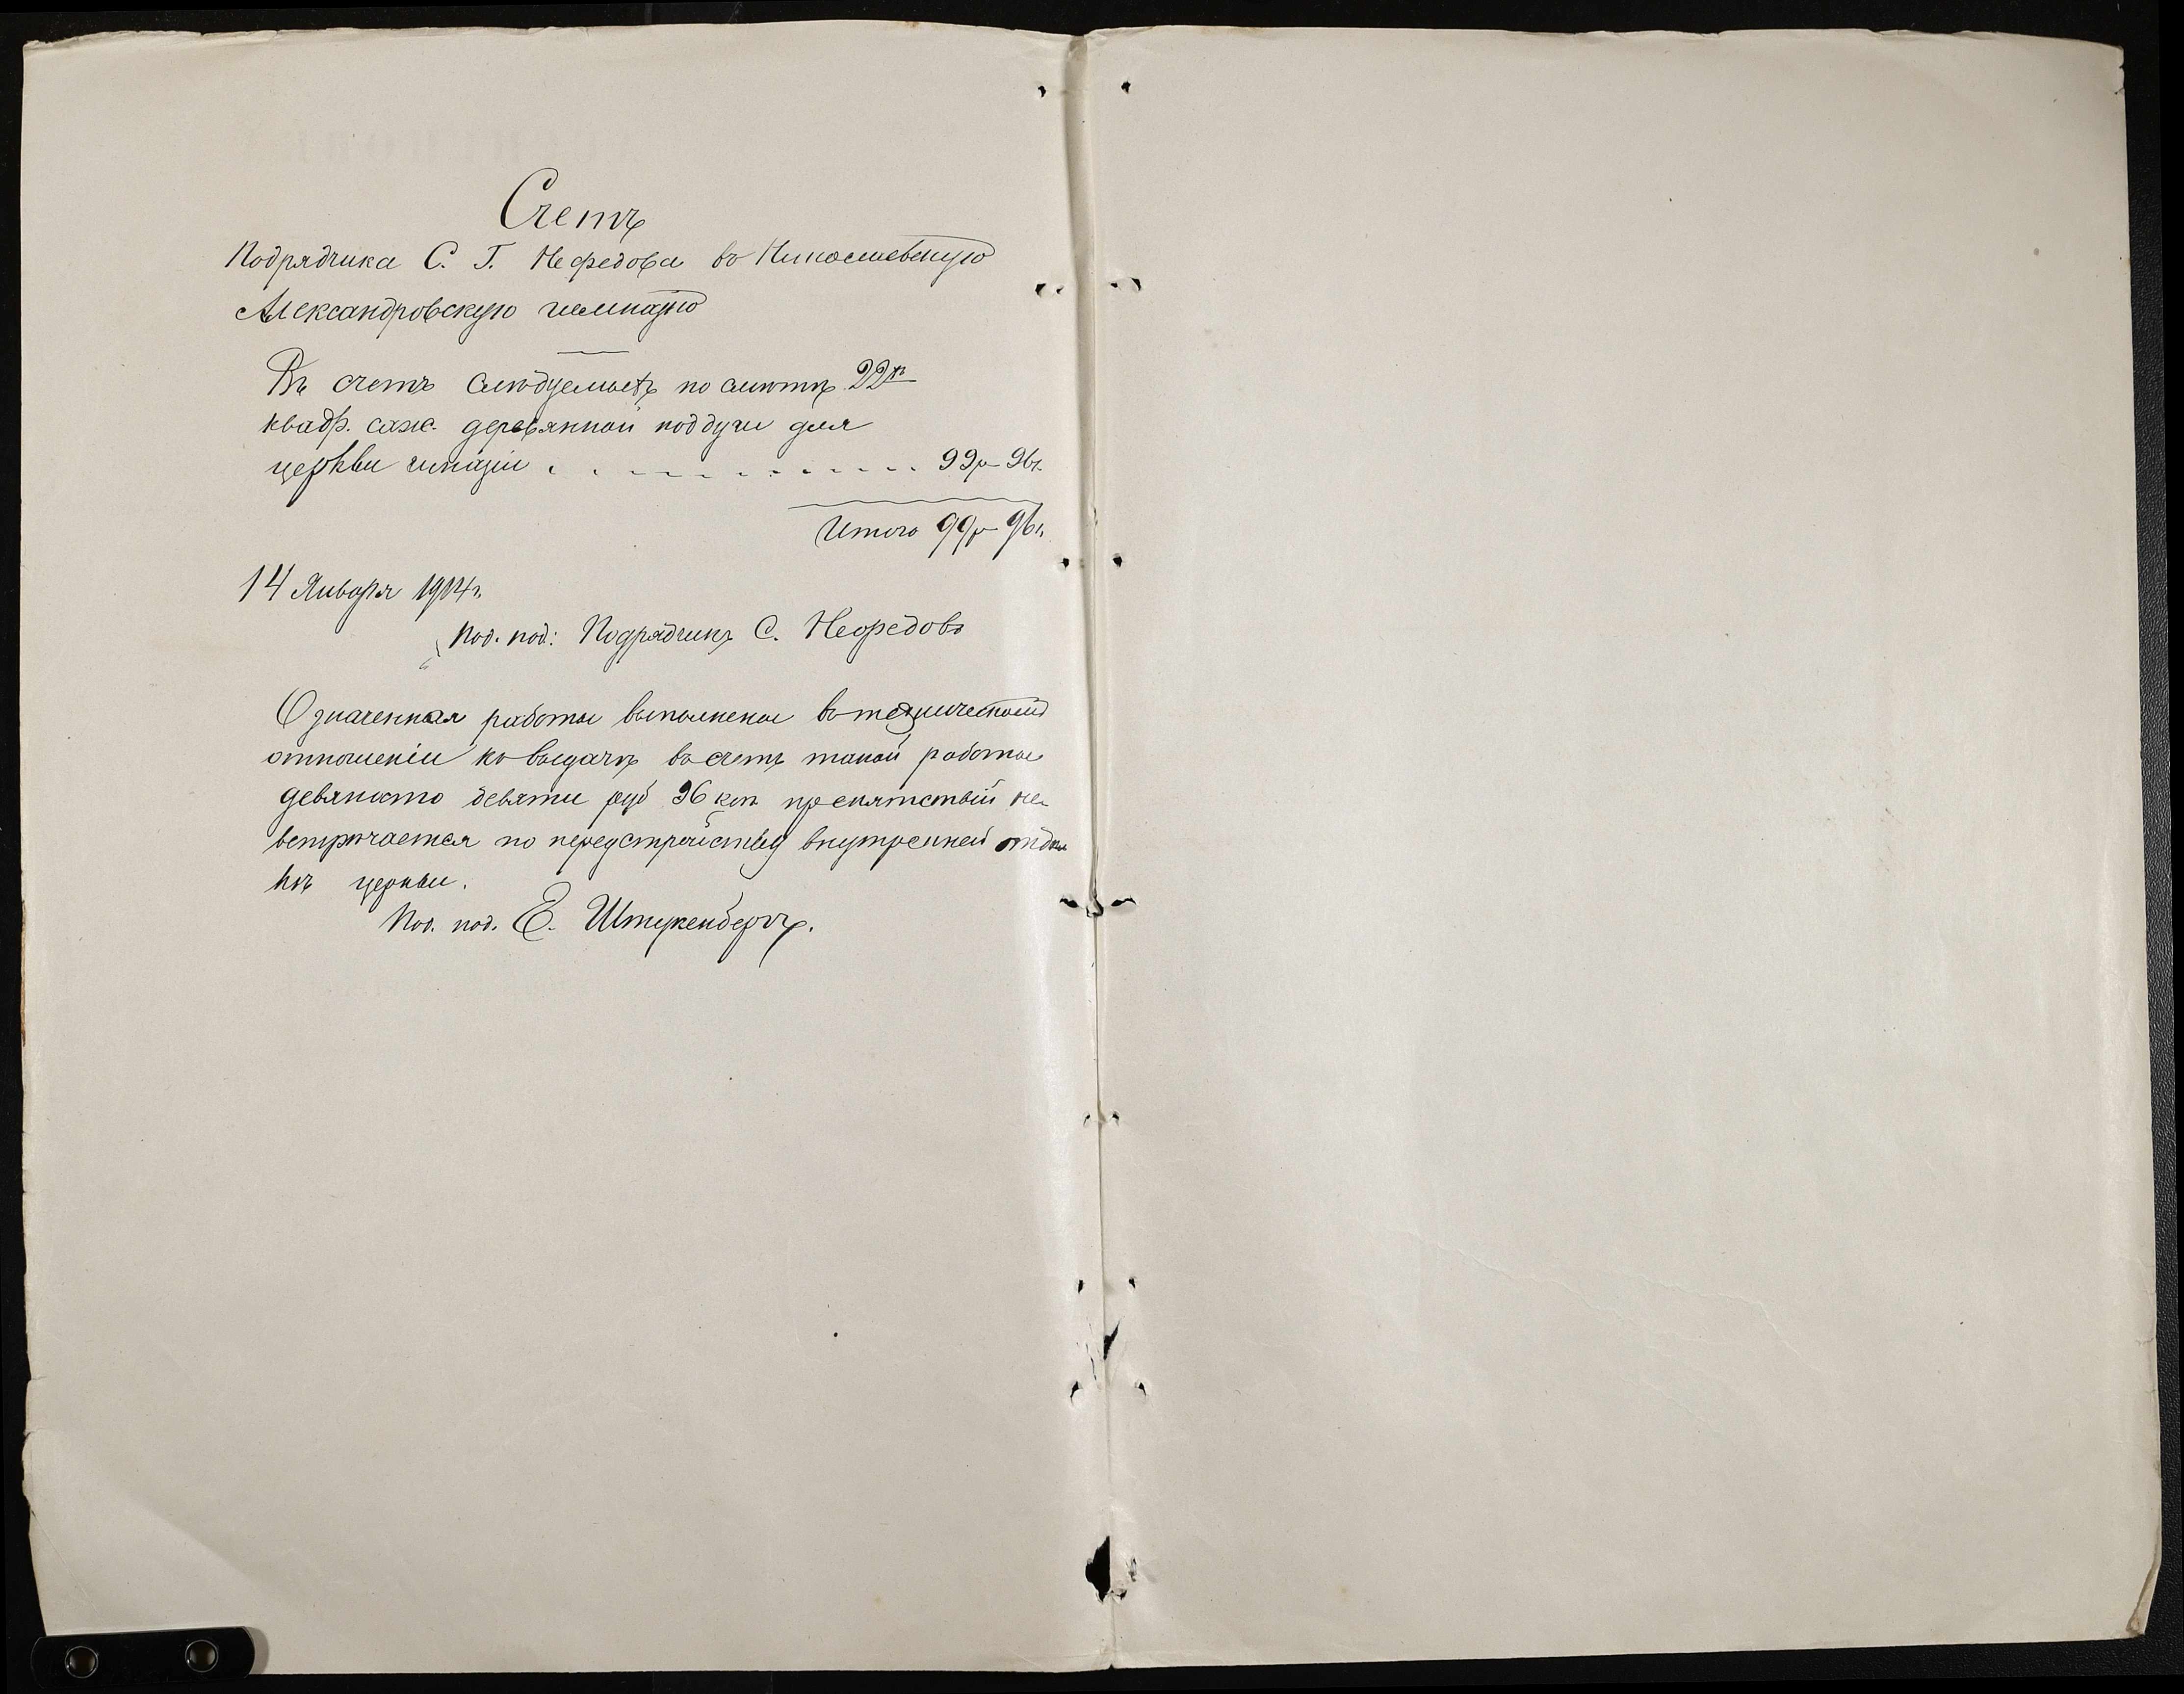 Счетъ
Подрядчика С. Г. Нефедова въ Николаевскую
Александровскую гимназію
Въ счетъ слѣдуемыхъ по смѣтѣ 22хъ
квадр. саж. деревянной поддуги для
церкви гимназіи . . . . . . . . . . . . 99р 96к.
Итого 99р 96к.
14 Января 1914г.
Под. под: Подрядчикъ С. Нефедовъ
Означенная работы выполнены въ техническомъ
отношеніи къ выдачѣ въ счетъ такой работы
девяносто девяти руб 96 коп препятствій не
встрѣчается по переустройству внутренней отдѣл
кѣ церкви.
Под. под. Е. Штукенбергъ.